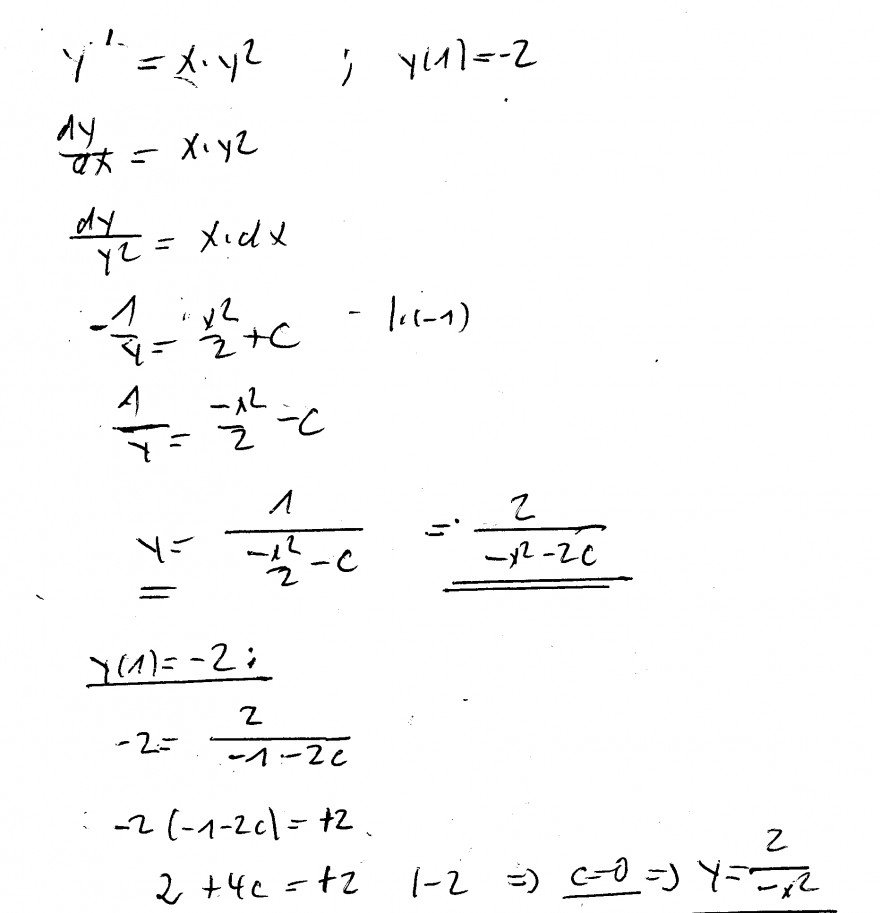 y' = x·y² ; y(1)=-2
dy/dx = x·y²
dy/y² = x·dx
-1/y = x²/2 + C |·(-1)
1/y = -x²/2 - C
y = 1/(-x²/2 - C) = 2/(-x² - 2C)
y(1)=-2:
-2 = 2/(-1-2C)
-2(-1-2C) = +2
2 + 4C = +2 |-2 => C=0 => y = 2/-x²